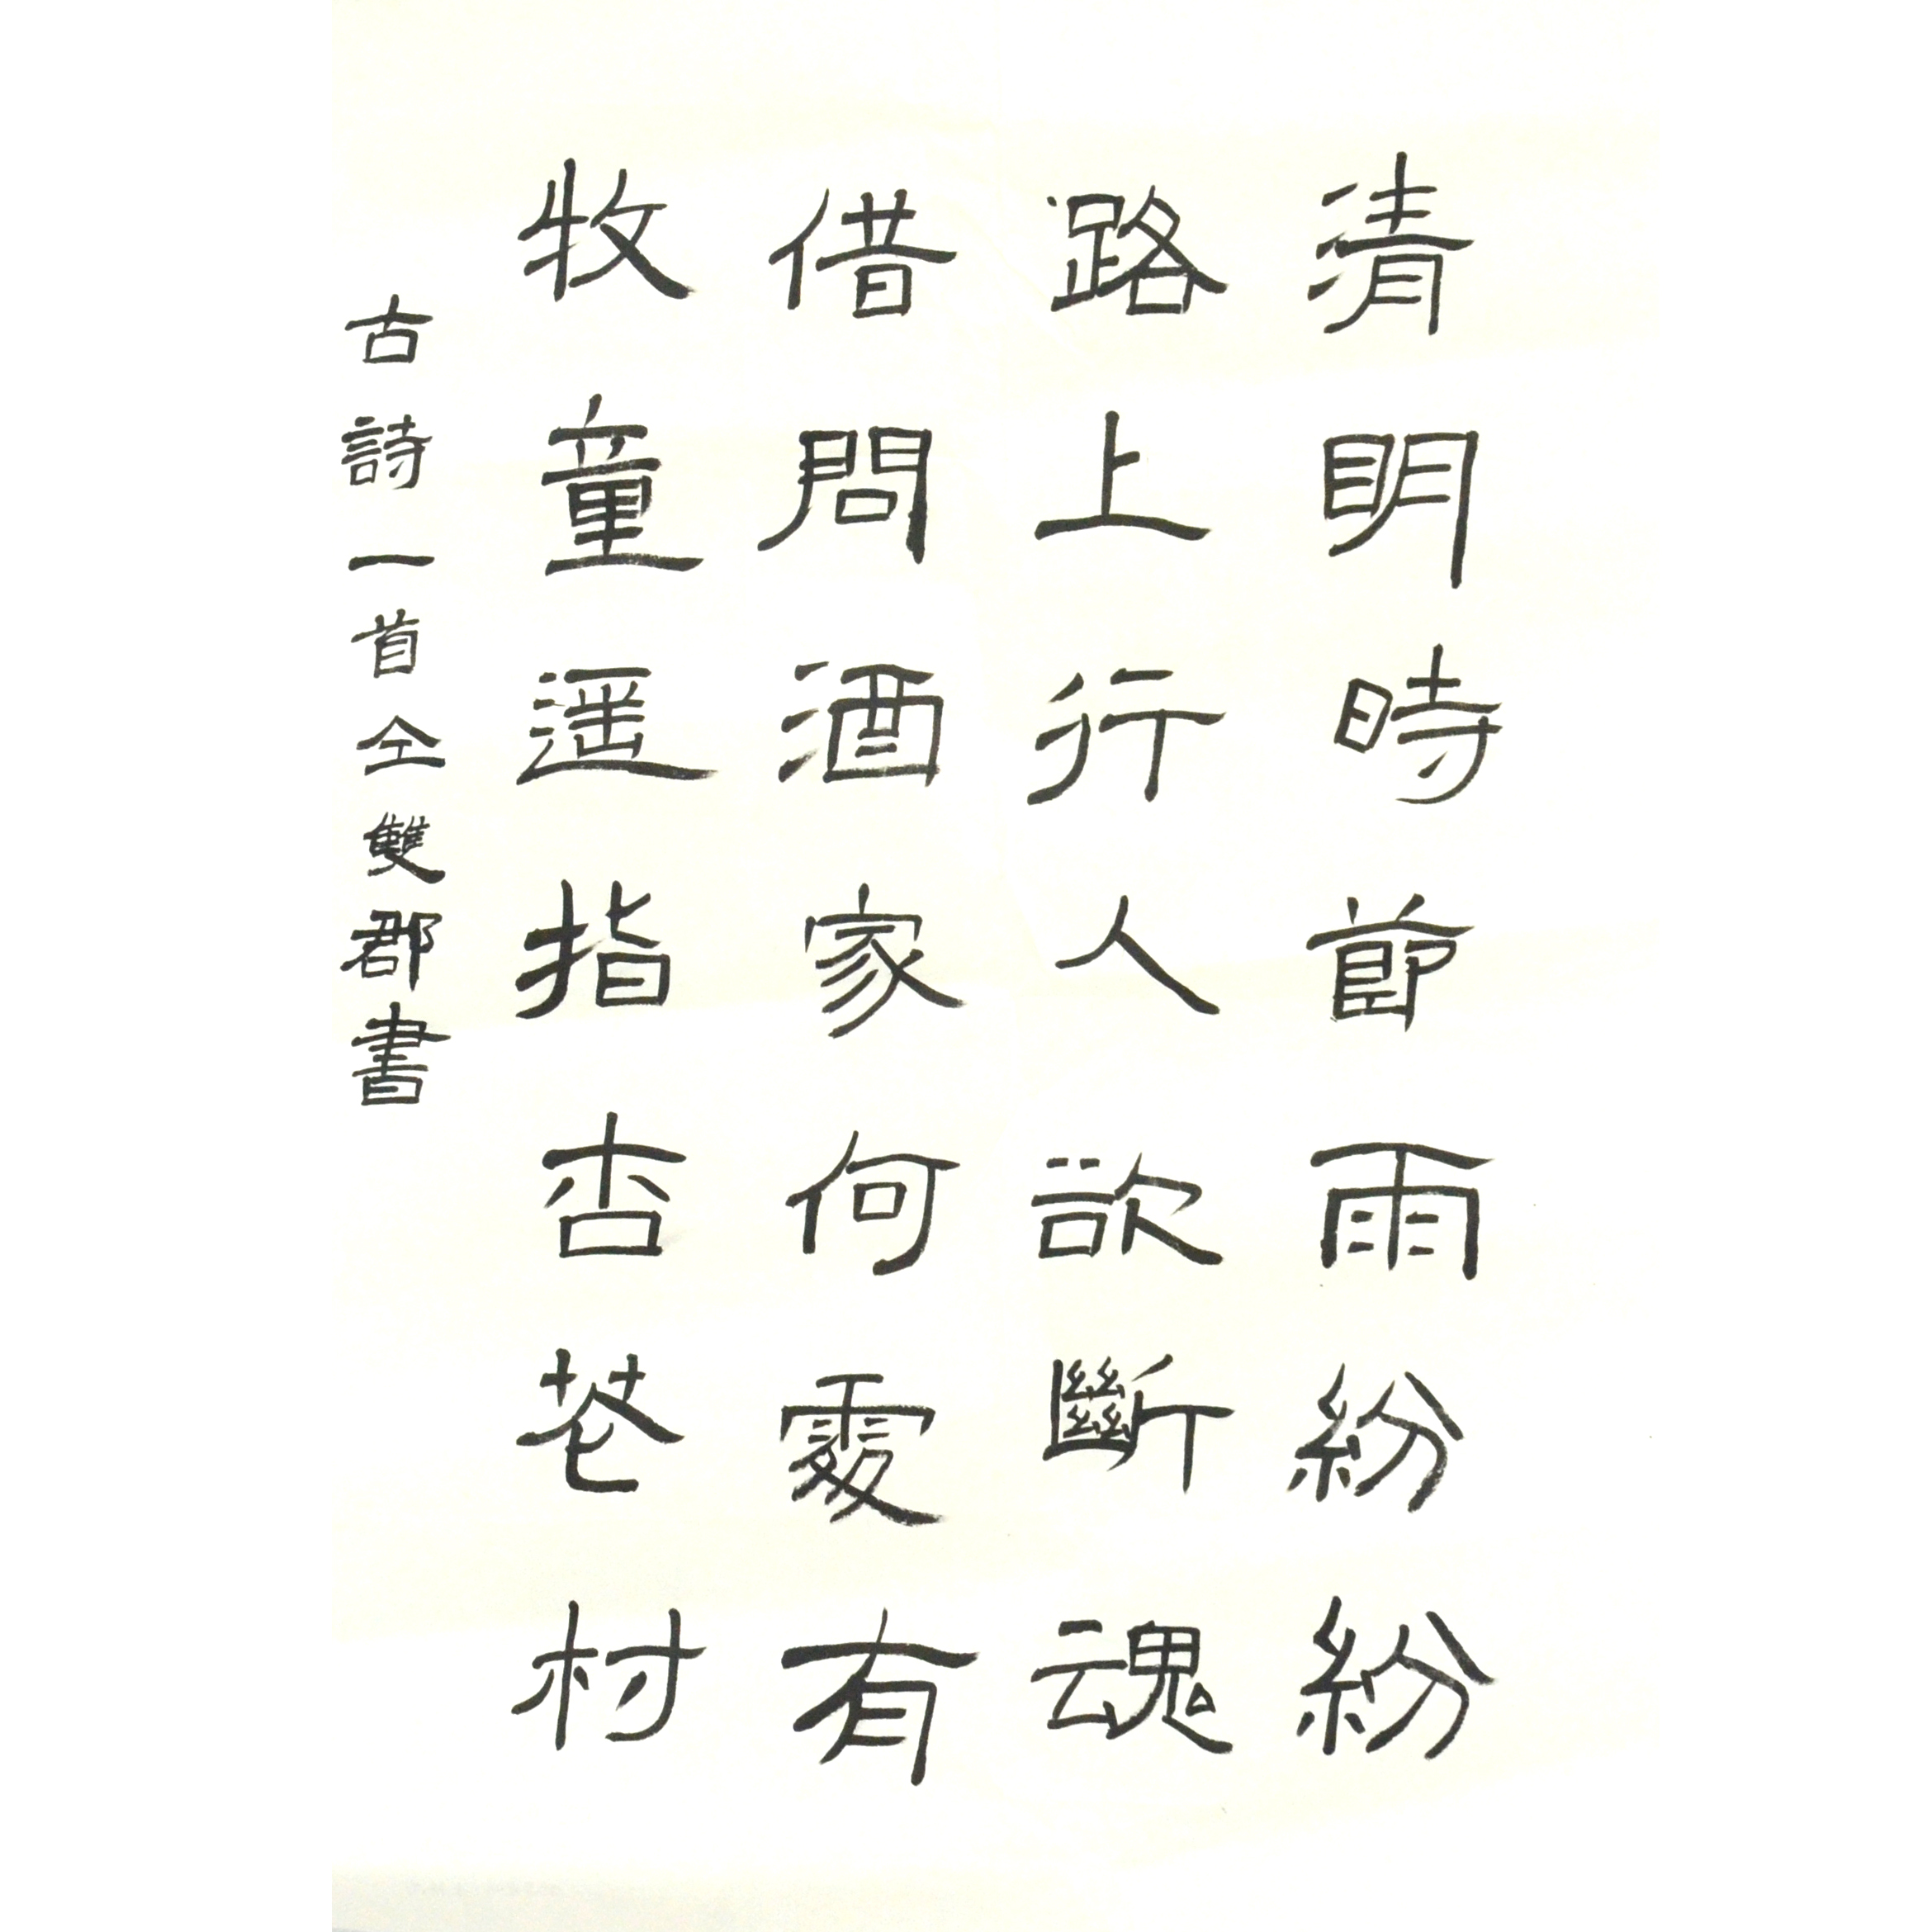 清明時節雨紛紛
路上行人欲斷魂
借問酒家何處有
牧童遥指杏花村
古詩一首仝雙郡書